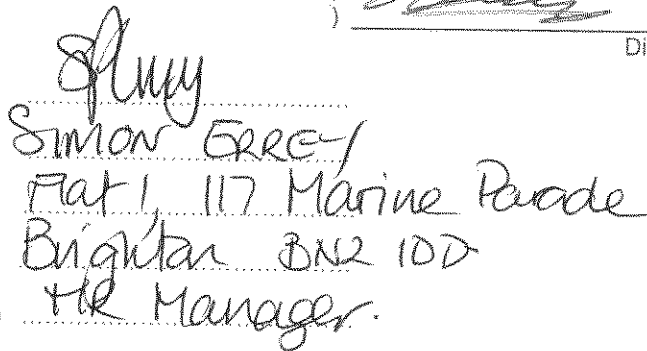 )
Di
SIMON ERREY
Flat 1, 117 Marine Parade
Brighton BN2 1DD
HR Manager.